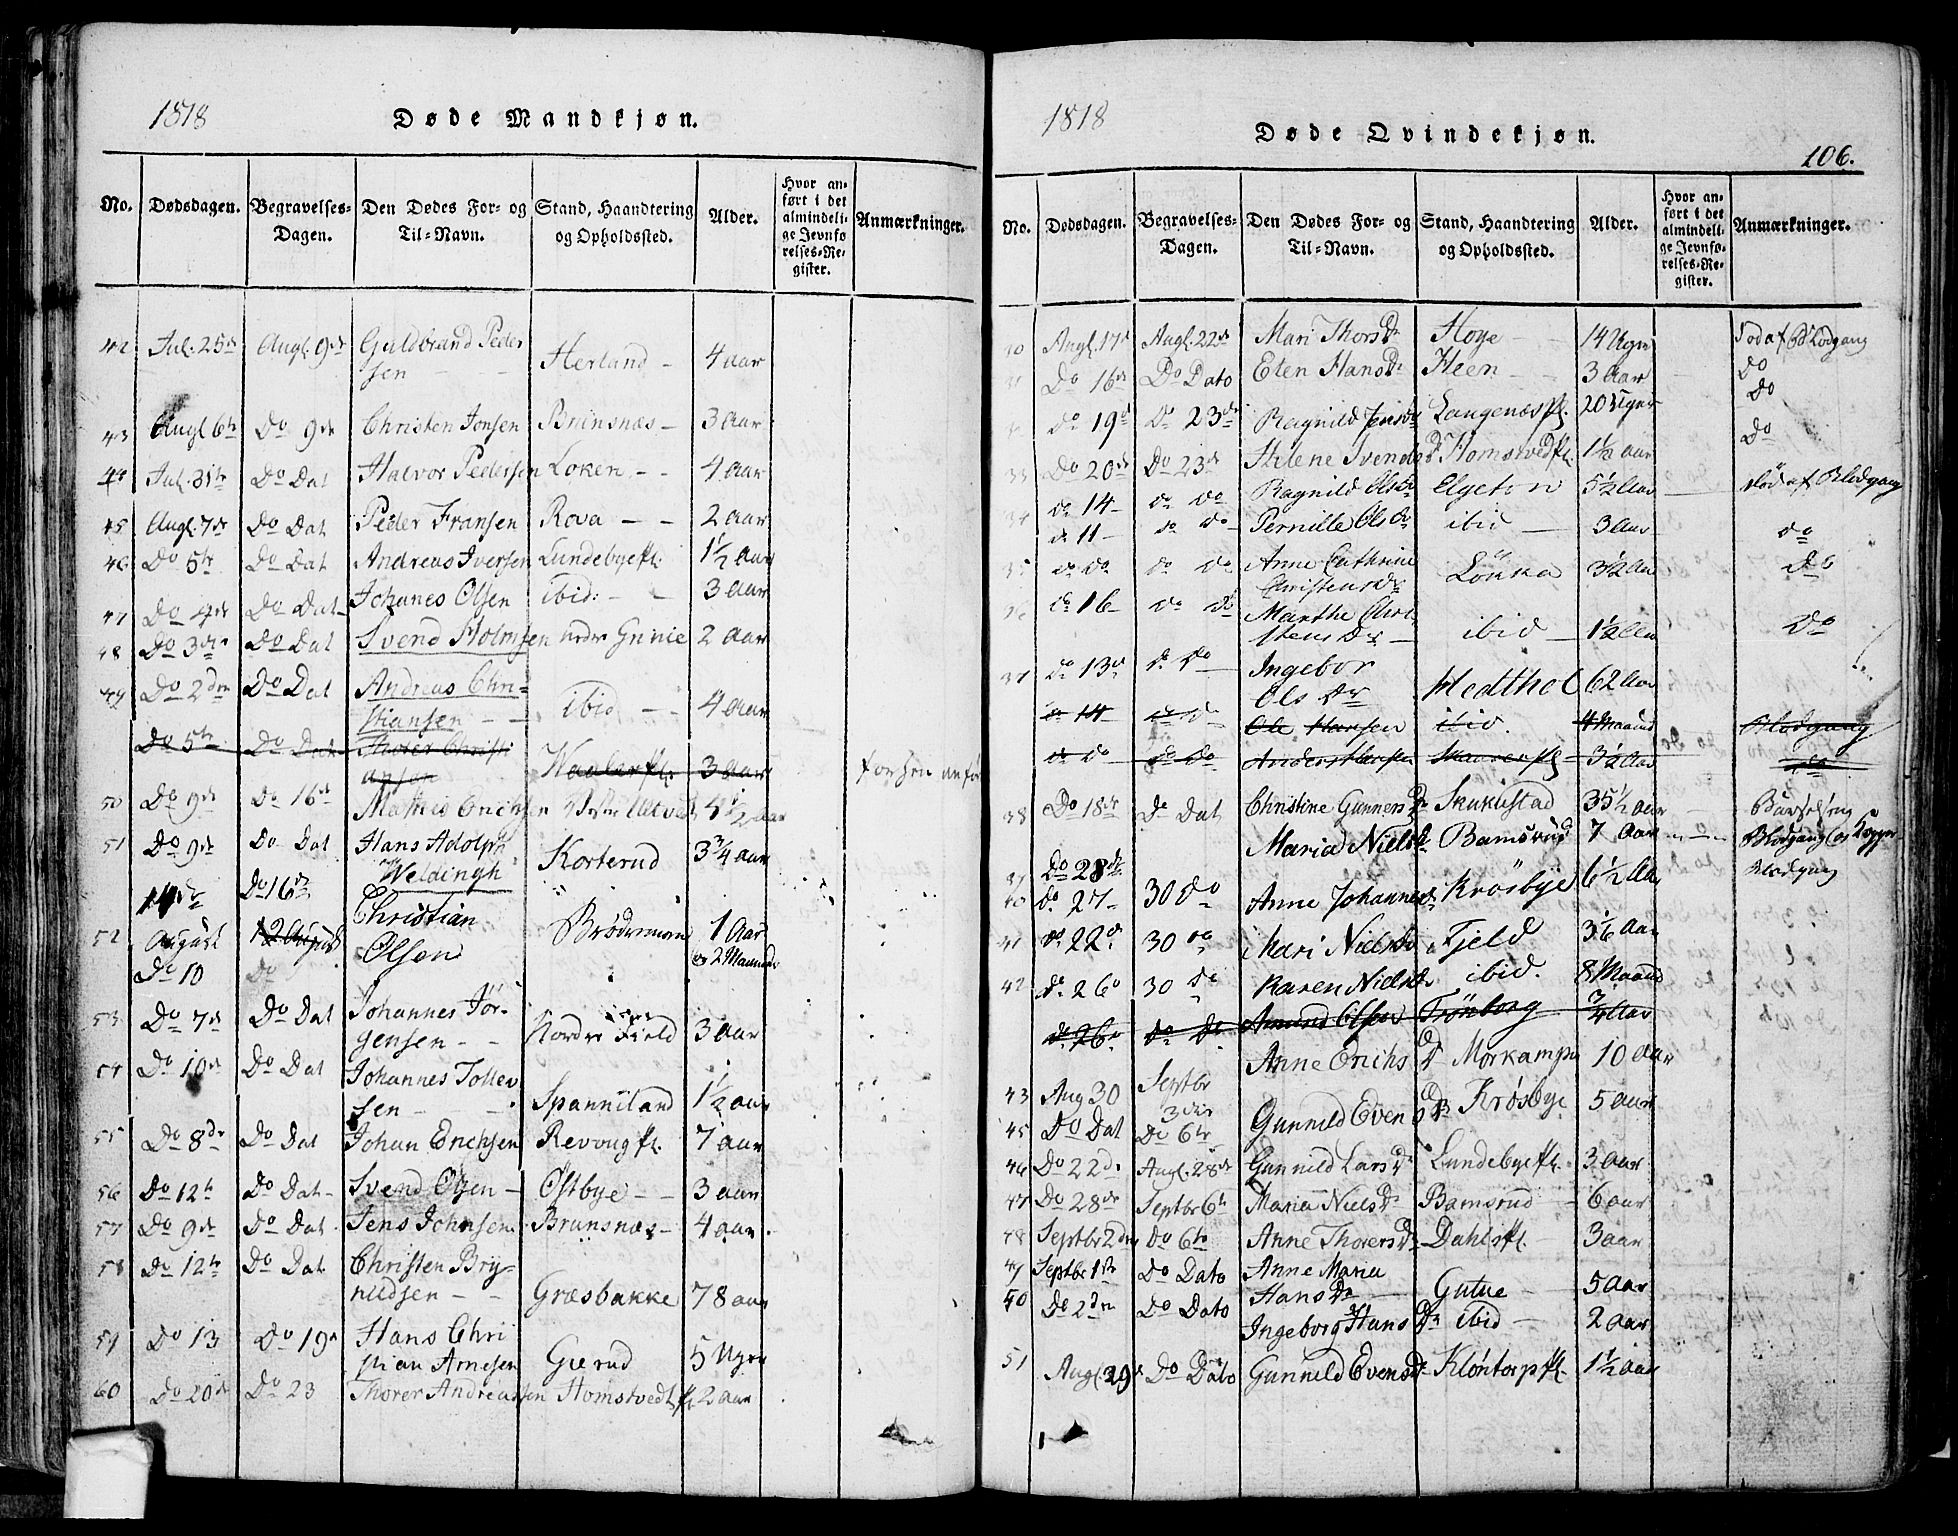 1818 Døde Mandkjøn.
No. Dødsdagen. Begravelses-Dagen. Den Dødes For- og Til-Navn. Stand, Haandtering og Opholdssted. Alder. Hvor anført i det almindelige Jevnførelses-Register. Anmærkninger.
42 Jul. 25de Augl. 9de Guldbrand Pedersen Herland - 4 aar
43 Augl 6te Do 9de Christen Jonsen Brunsnæs - 3 Aar
44 Jul. 31te Do Dat Halvor Pedersen Loken - - 4 Aar
45 Augl 7de Do Dat Peder Fransen Rova - - 2 aar
46 Do 5te Do Dat Andreas Iversen Lundebyepl. 1½ Aar
47 Do 4de Do Dat Johanes Olsen ibid: - - 3 aar
48 Do 3die Do Dat Svend Holmsen 2 aar
49 Do 2den Do Dat Andreas Christiansen - - ibid - - 4 aar
Do 5te Do Dat Thorer Christiansen Waalerpl. 3 aar
50 Do 9de Do 16de Mathis Erichsen 4½ aar
51 Do 9de Do Dat Hans Adolph Weldingh Korterud 3¾ aar
14de Do 16de
52 August 12 August Christian Olsen 1 Aar og 2 Maaneder
Do 10 do
53 Do 7de Do Dat Johannes Jörgensen - - Nordre Field 3 aar
54 Do 10de Do Dat Johannes Tollevsen - - Spanniland 1½ aar
55 Do 8de Do Dat Johan Erichsen Revougpl. 7 aar
56 Do 12te Do Dat - Svend Olsen - Östbye - - 3 aar
57 Do 9de Do Dat Jens Johnsen Brunsnæs - 4 aar.
58 Do 12te Do Dat Christen Brynildsen - - Græsbakke 78 aar
59 Do 13 Do 19de Hans Christian Arnesen Gierud 5 Uger
60 Do 20de Do 23 Thorer Andreassen Homstvedtpl. 2 aar
1818 Døde Qvindekjøn.
106.
No. Dødsdagen. Begravelses-Dagen. Den Dødes For- og Til-Navn. Stand, Haandtering og Opholdssted. Alder. Hvor anført i det almindelige Jevnførelses-Register. Anmærkninger.
30 Augl. 17de Augl. 22de Mari Thorsdr Hoye - 14 Uger Död af Blodgang
31 Do 16de Do Dato Elen Hansdr Heen - - 3 Aar Do
do 19de Do 23de Ragnild Jensdr Langenæspl. 20 Uger Do
33 Do 20de Do 23de Helene Svendsdr Homstvedpl. 1½ aar Do
34 do 14 - do do Ragnild Olsdr Elgeton 5½ Aar död af Blodgang
do 11 - do do Pernille Olsdr ibid - 3 Aar do
35 do do do do Anne Cathrine Christensdr Löuka 3½ Aar do
36 do 16 - do do Marthe Christensdr - ibid - 1½ Aar Do
37 do 13de do do Ingebor Olsdr Hedthol 62 Aar
do 14 do do Ole Hansen ibid. 4 Maaned Blodgang
do do do do Anders Hansen 3½ Aar do
38 Do 18de Do Dat Christine Gunnersdr Skukustad 35½ aar Barselseng
39 Do 28de Maria Nielsdr Bamsrud 7 Aar Blodgang og Kopper
40 do 27 - 30 do Anne Johannesdr Krösbye 6½ Aar Blodgang
41 do 22de 30 do Mari Nielsdr Fjeld 3 1/6 Aar
42 do 26de 30 do Karen Nielsdr ibid. 8 Maaned
do 26de do do Amund Olsen Trönborg ¾ Aar
43 Aug 30 Septbr 3die Anne Erichsdr Morkamp 10 aar
45 Do Dat Do 6te Gunnild Evensdr Krösbye 5 aar
46 Do 22de Augl. 28de Gunnild Larsdr Lundebyepl. 3 aar
47 Do 28de Septbr 6te Maria Nielsdr Bamsrud - 6 aar
48 Septbr 2den Do 6te Anne Thorersdr Dahlspl. 3 aar
49 Septbr 1ste Do Dato Anne Maria Hansdr Gutue - 5 aar
50 Do 2den Do Dato Ingeborg Hansdr ibid - 2 aar
51 Augl. 29de Do Dato Gunnild Evensdr Klöntorppl. 1½ aar